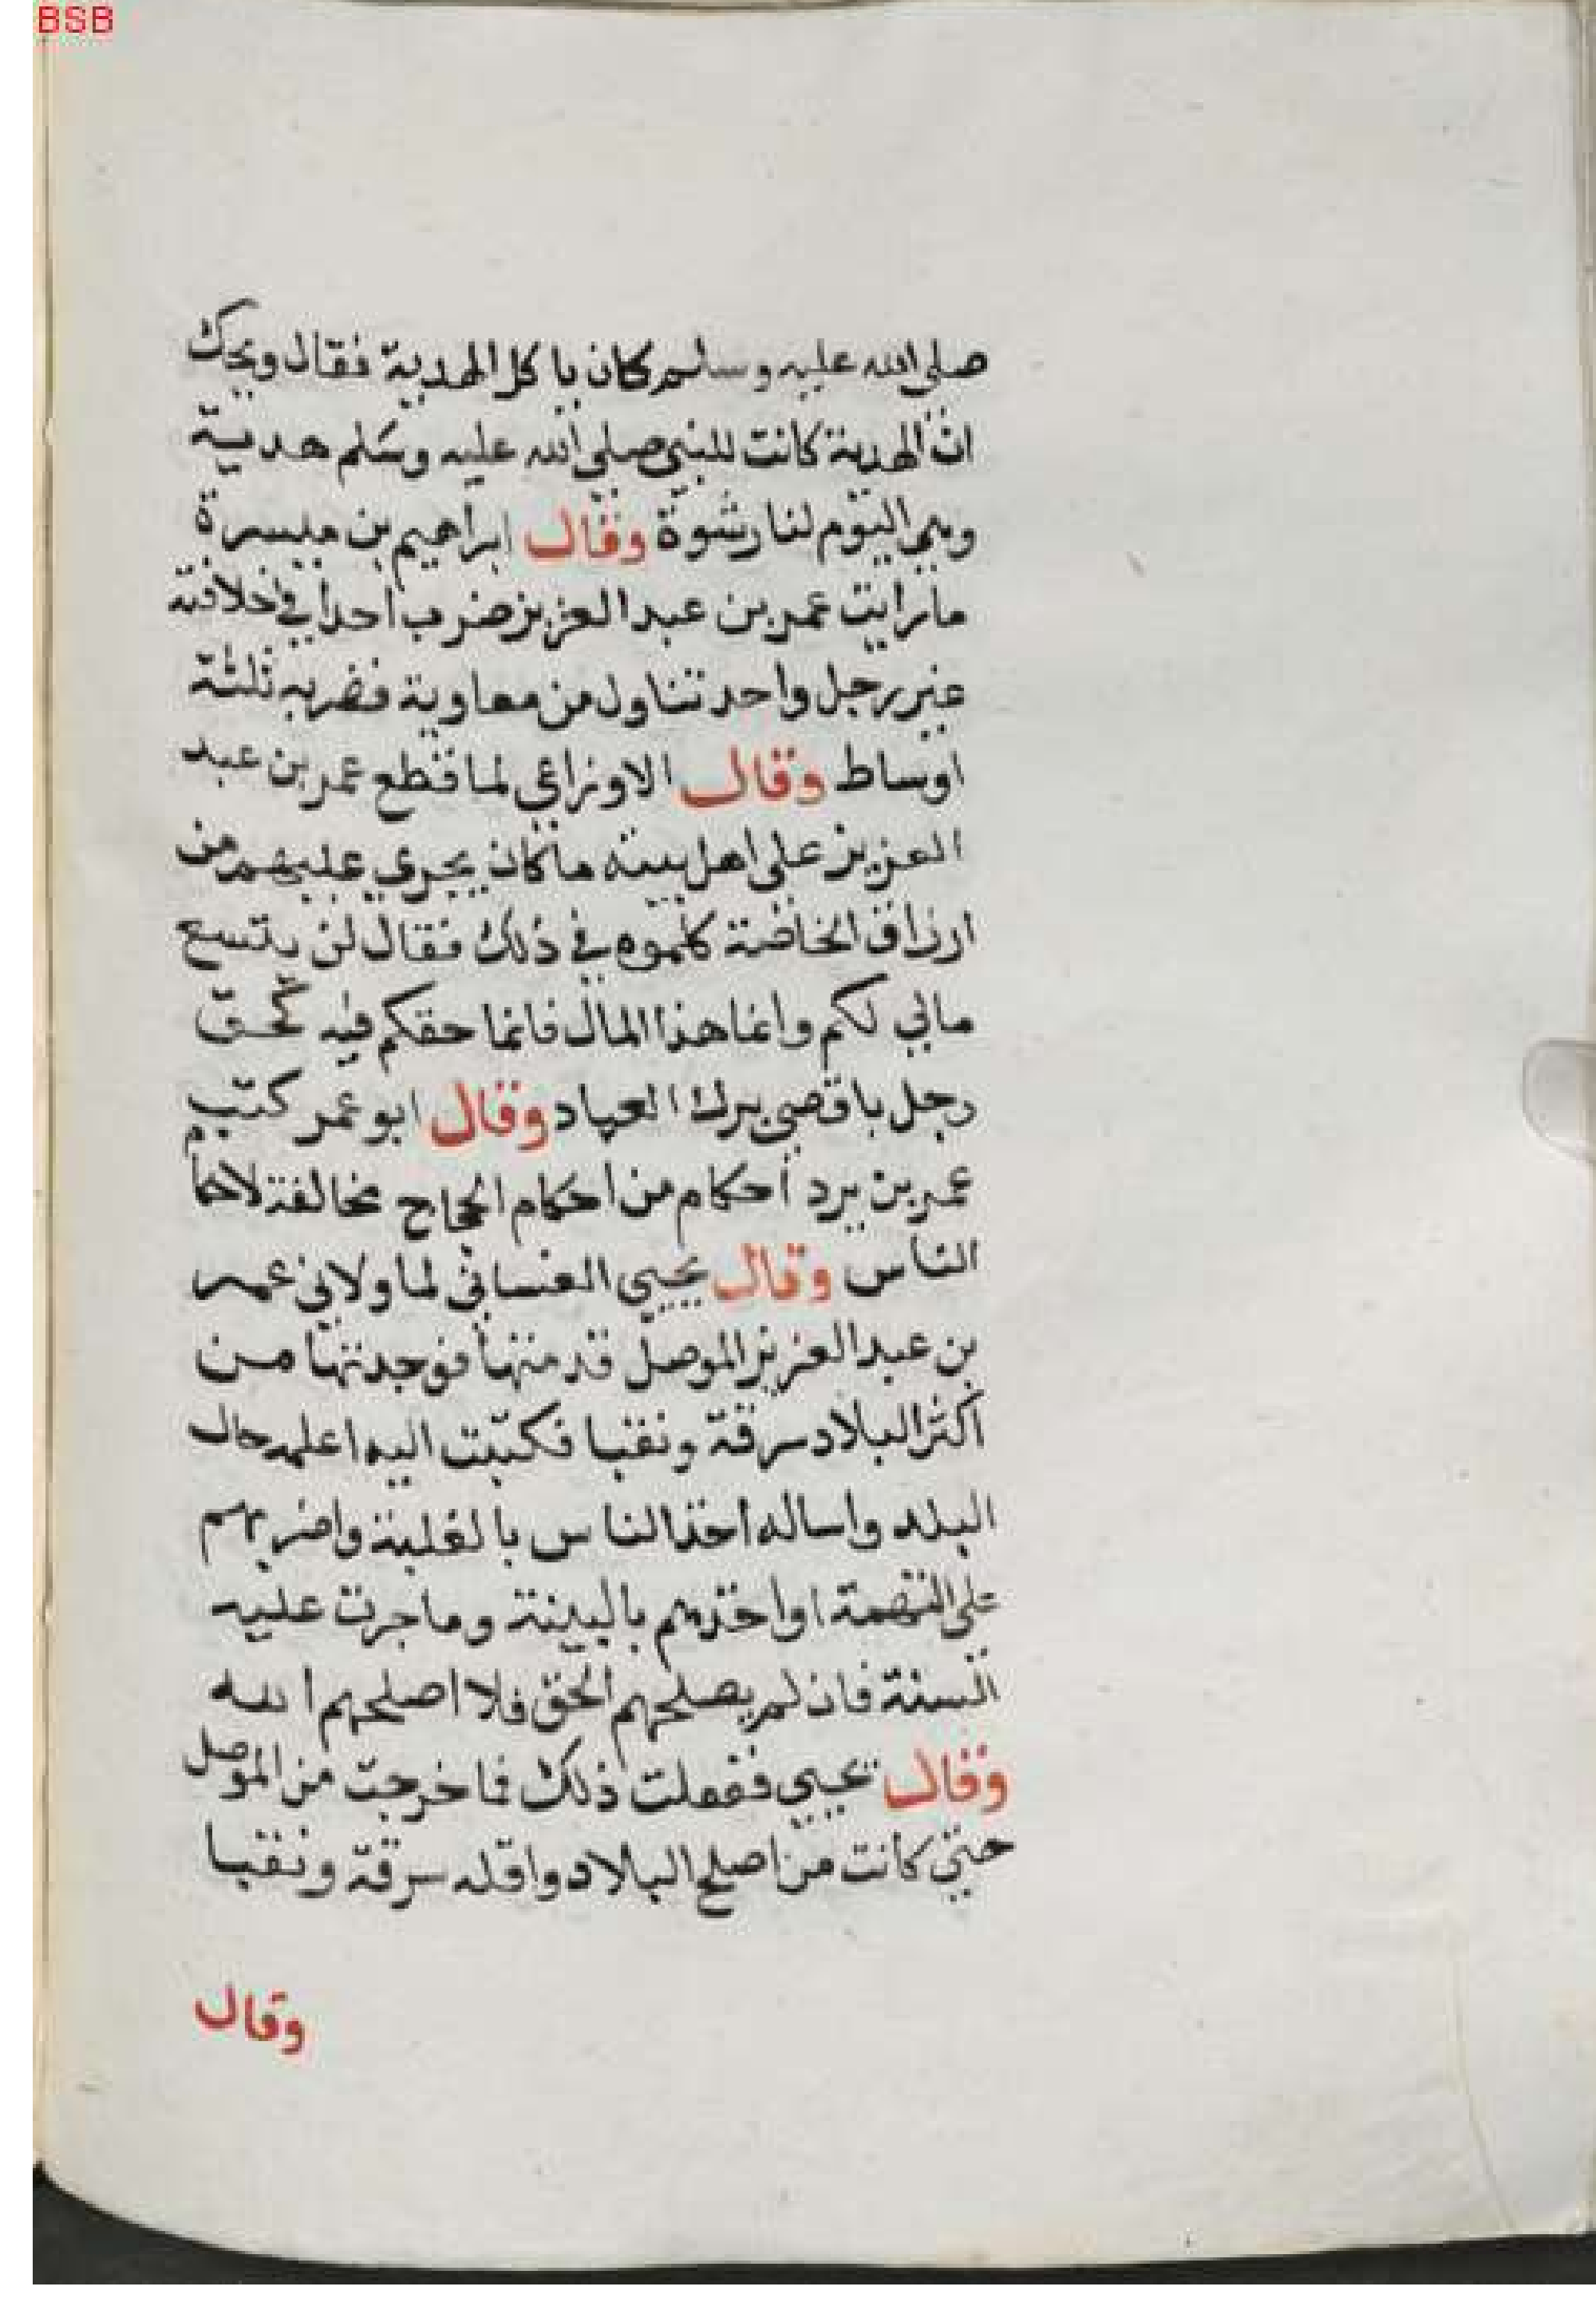 BSB
صلى الله عليه وسلم كان ياكل الهدية فقال ويحك
ان الهدية كانت للنبي صلى الله عليه وسلم هدية
وهي اليوم لنا رشوة وقال ابراهيم بن ميسرة
ما رايت عمر بن عبد العزيز ضرب احدا في خلافته
غير رجل واحد تناول من معاوية فضربه ثلثة
اوساط وقال الاوزاعي لما قطع عمر بن عبد
العزيز على اهل بيته ما كان يجري عليهم من
ارزاق الخاصة كلموه في ذلك فقال لن يتسع
مالي لكم وانما هذا المال فانما حقكم فيه كحق
رجل باقصى برك العماد وقال ابو عمر كتب
عمر بن يرد احكام من احكام الحجاج مخالفة لاحكام
الناس وقال يحيي الغساني لما ولاني عمر
بن عبد العزيز الموصل قدمتها فوجدتها من
اكثر البلاد سرقة ونقبا فكتبت اليه اعلمه حال
البلد واساله اخذ الناس بالغلبة واضربهم
على التهمة او اخذهم بالبينة وما جرت عليه
السنة فان لم يصلحهم الحق فلا اصلحهم الله
وقال يحيي ففعلت ذلك فما خرجت من الموصل
حتي كانت من اصلح البلاد واقله سرقة ونقبا
وقال